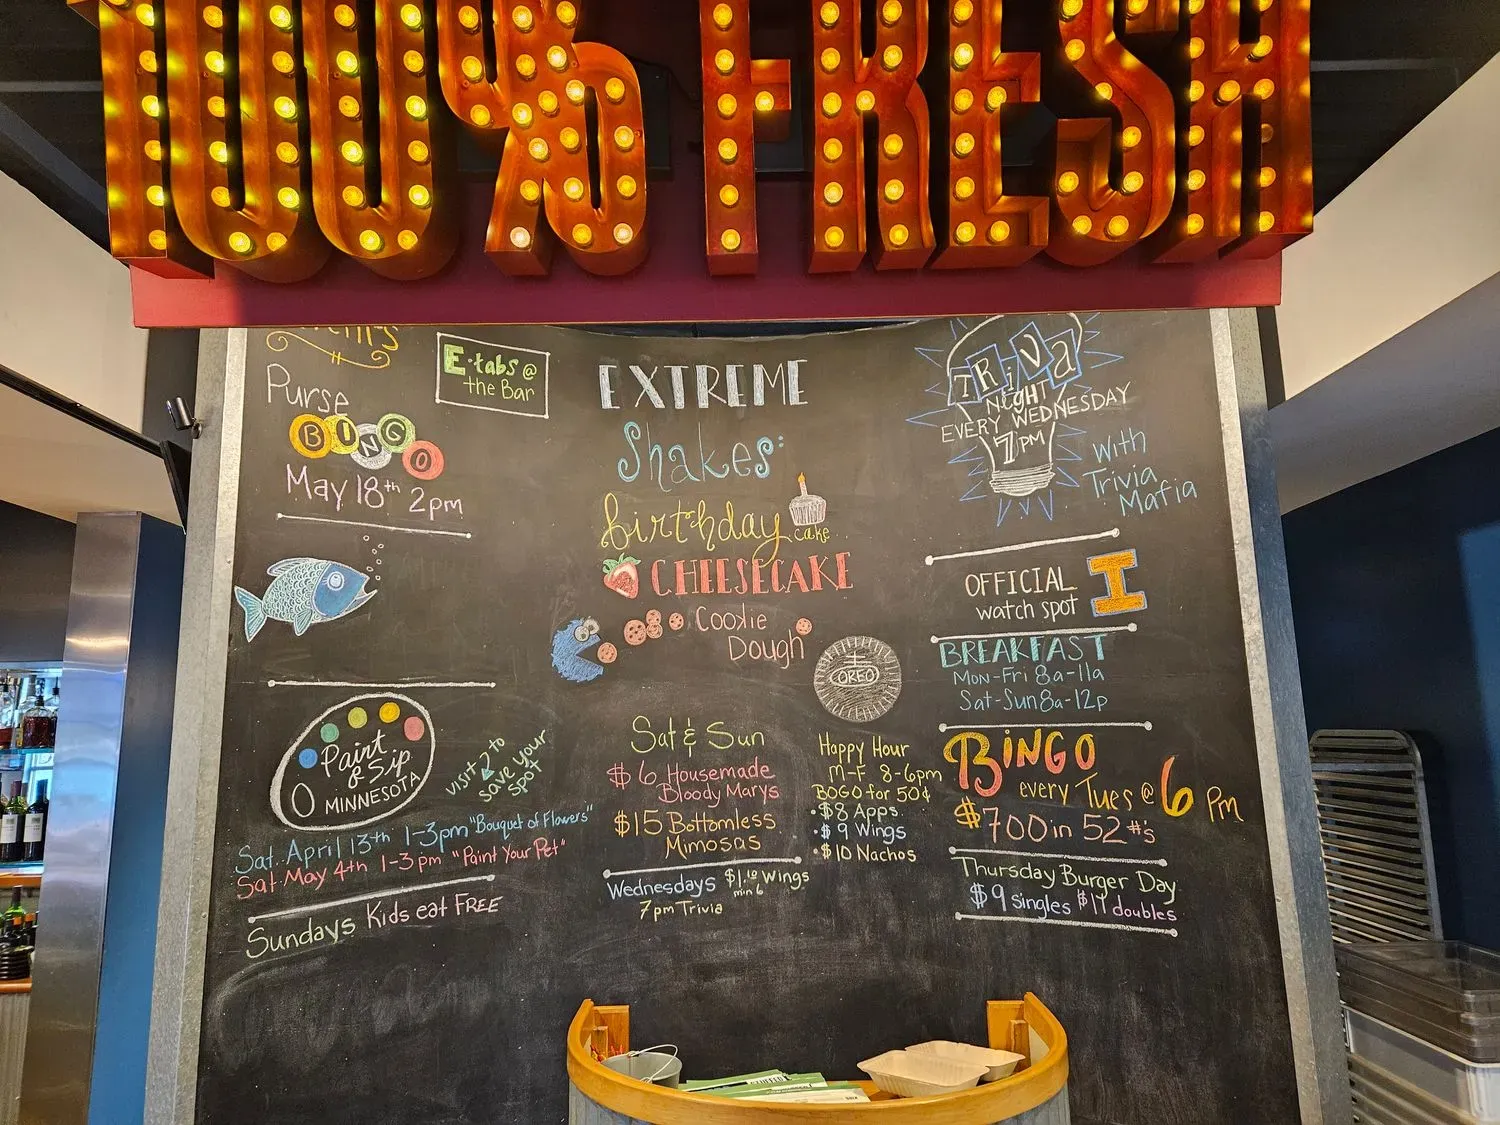 100% FRESH
Purse
BINGO
May 18th 2pm
E-tabs @
the Bar
Paint
& Sip
MINNESOTA
visit 2 to
save your
spot
Sat. April 13th 1-3pm "Bouquet of Flowers"
Sat. May 4th 1-3pm "Paint Your Pet"
Sundays Kids eat FREE
EXTREME
Shakes:
birthday
cake
CHEESECAKE
Cookie
Dough
OREO
Sat & Sun
$6 Housemade
Bloody Marys
$15 Bottomless
Mimosas
Wednesdays $1.10 Wings
min 6
7pm Trivia
Happy Hour
M-F 8-6pm
BOGO for 50¢
• $8 Apps
• $9 Wings
• $10 Nachos
TRiVa
NigHT
EVERY WEDNESDAY
7PM
With
Trivia
Mafia
OFFICIAL
watch spot
I
BREAKFAST
Mon-Fri 8a-11a
Sat-Sun 8a-12p
BiNGO
every Tues @ 6 Pm
$700 in 52 #'s
Thursday Burger Day
$9 singles $11 doubles